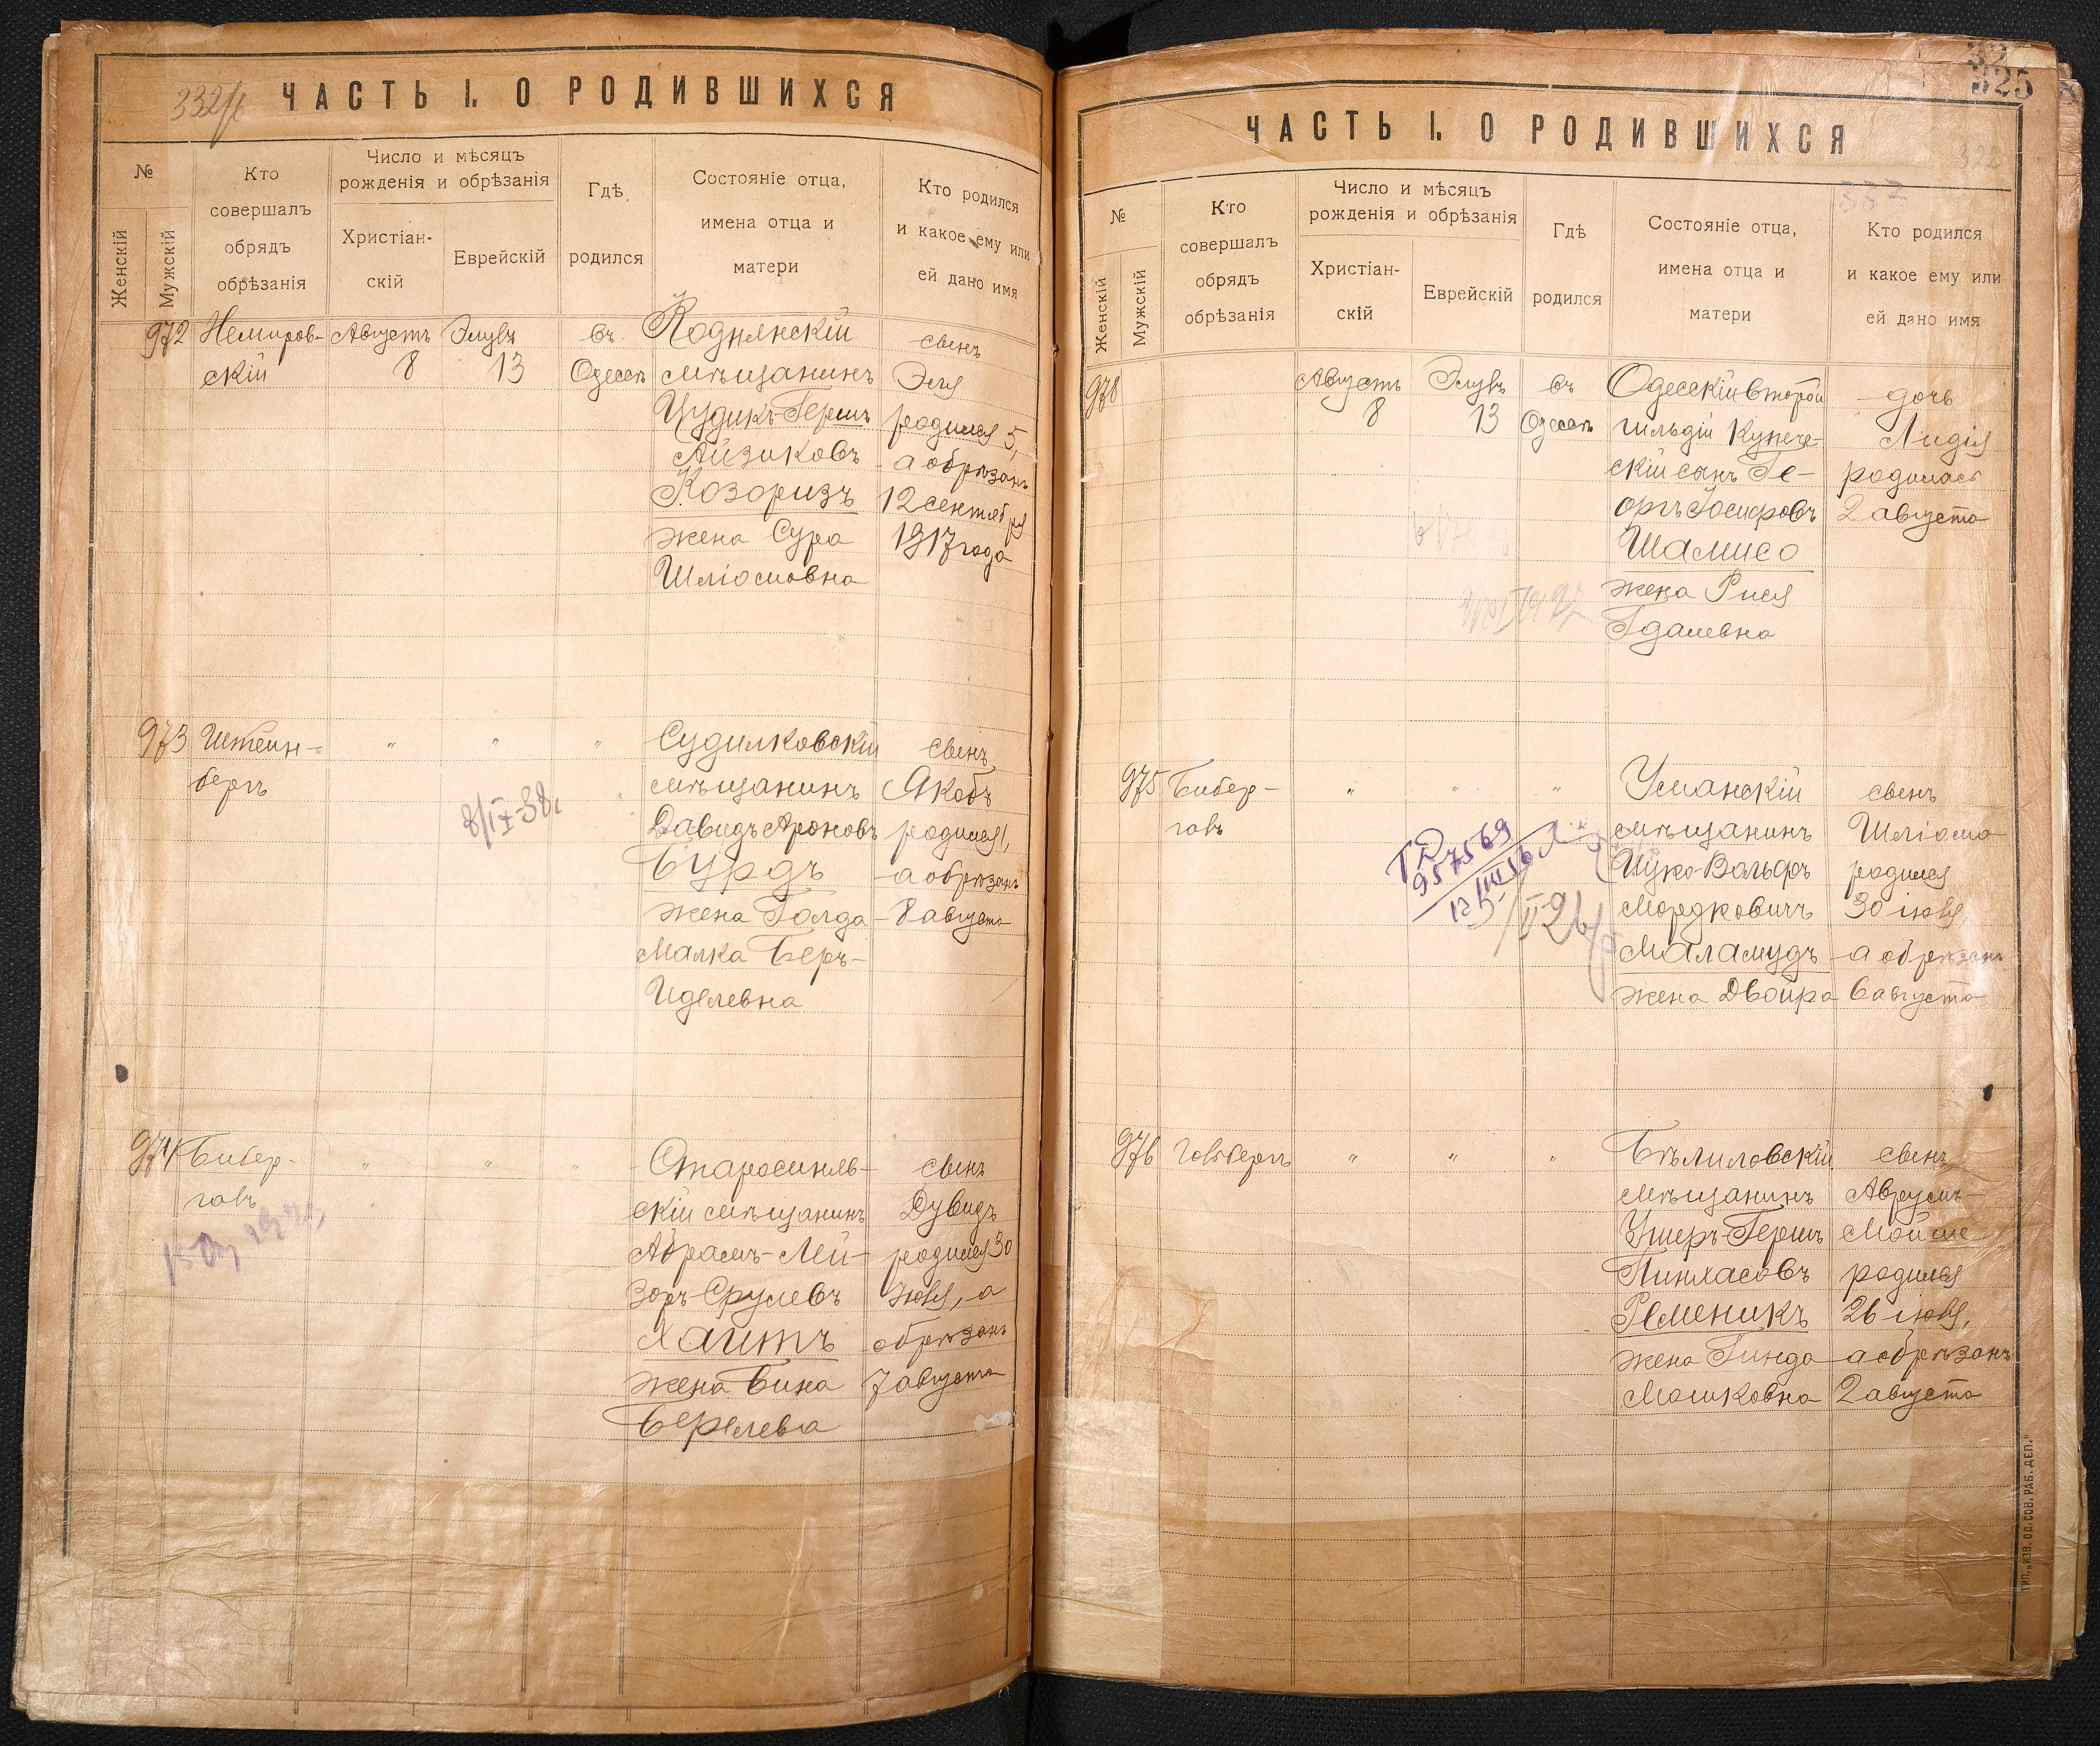 332/
ЧАСТЬ I. О РОДИВШИХСЯ
№
Женскій
Мужскій
Кто
совершалъ
обрядъ
обрѣзанія
Число и мѣсяцъ
рожденія и обрѣзанія
Христіан-
скій
Еврейскій
Гдѣ
родился
Состояніе отца,
имена отца и
матери
Кто родился
и какое ему или
ей дано имя
972
Немиров-
скій
Августъ
8
Элулъ
13
въ
Одессѣ
Коднянскій
мѣщанинъ
Цудикъ-Гершъ
Айзиковъ
Козоризъ
жена Сура
Шліомовна
сынъ
Эля
родился 5,
а обрѣзанъ
12 сентября
1917 года
973
Штейн-
бергъ
"
"
"
8/IX-38г
Судилковскій
мѣщанинъ
Давидъ Ароновъ
Бурдъ
жена Голда-
Малка Беръ-
Иделевна
сынъ
Якобъ
родился 1,
а обрѣзанъ
8 августа
974
Бибер-
галъ
"
"
"
Старосиняв-
скій мѣщанинъ
Абрамъ-Лей-
зоръ Срулевъ
Хаитъ
жена Бина
Берелева
сынъ
Дувидъ
родился 30
Іюля, а
обрѣзанъ
7 августа
325
322
333
ЧАСТЬ I. О РОДИВШИХСЯ
№
Женскій
Мужскій
Кто
совершалъ
обрядъ
обрѣзанія
Число и мѣсяцъ
рожденія и обрѣзанія
Христіан-
скій
Еврейскій
Гдѣ
родился
Состояніе отца,
имена отца и
матери
Кто родился
и какое ему или
ей дано имя
978
Августъ
8
Элулъ
13
въ
Одессѣ
Одесскій второй
гильдіи купече-
скій сынъ Ге-
оргъ Іосифовъ
Шамисо
жена Рися
Гдалевна
дочь
Лидія
родилась
2 августа
975
Бибер-
галъ
"
"
"
957569
Уманскій
мѣщанинъ
Ицко-Вольфъ
Мордковичъ
Маламудъ
жена Двойра
сынъ
Шліома
родился
30 іюля,
а обрѣзанъ
6 августа
976
Голдбергъ
"
"
"
Бѣлиловскій
мѣщанинъ
Ушеръ-Гершъ
Пинхасовъ
Ременикъ
жена Гинда
Мошковна
сынъ
Аврумъ-
Мойше
родился
26 іюля,
а обрѣзанъ
2 августа
ТИП. „ИЗВ. ОД. СОВ. РАБ. ДЕП."